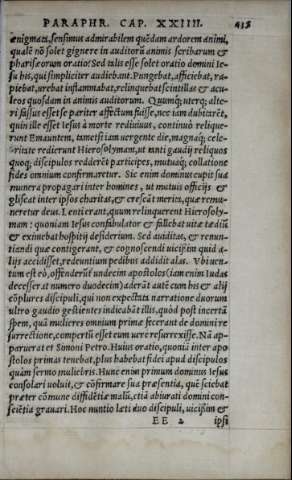 PARAPHR. CAP. XXIIII. 435
ænigmati, sensimus admirabilem quēdam ardorem animi,
qualē nō solet gignere in auditorū animis scribarum &
phariseorum oratio? Sed talis esse solet oratio domini Ie-
su his, qui simpliciter audiebant. Pungebat, afficiebat, ra-
piebat, urebat inflammabat, relinquebat scintillas & acu-
leos quosdam in animis auditorum. Quumq; uterq; alte-
ri fassus esset se pariter affectum fuisse, nec iam dubitarēt,
quin ille esset Iesus à morte rediuiuus, continuò relique-
runt Emauntem, tametsi iam uergente die, magnaq; cele-
ritate redierunt Hierosolymam, ut tanti gaudij reliquos
quoq; discipulos redderēt participes, mutuaq; collatione
fides omnium confirmaretur. Sic enim dominus cupit sua
munera propagari inter homines, ut mutuis officijs &
gliscat inter ipsos charitas, & crescāt merita, quæ remu-
neretur deus. I enti erant, quum relinquerent Hierosoly-
mam: quoniam Iesus confabulator & fallebat uiæ tædiū
& eximebat hospitij desiderium. Sed auditas, & renun-
tiandi quæ contigerant, & cognoscendi uicissim quid a-
lijs accidisset, redeuntium pedibus addidit alas. Vbi uen-
tum est eò, offenderūt undecim apostolos (iam enim Iudas
decesserat numero duodecim) aderāt autē cum his & alij
cōplures discipuli, qui non expectata narratione duorum
ultro gaudio gestientes indicabāt illis, quòd post incertā
spem, quā mulieres omnium primæ fecerant de domini re
surrectione, compertū esset eum uere resurrexisse. Nā ap-
paruerat et Simoni Petro. Huius oratio, quoniā inter apo
stolos primas tenebat, plus habebat fidei apud discipulos
quàm sermo muliebris. Hunc enim primum dominus Iesus
consolari uoluit, & cōfirmare sua præsentia, quē sciebat
præter cōmune diffidētiæ malū, etiā abiurati domini con-
sciētia grauari. Hoc nuntio læti duo discipuli, uicissim &
EE 2 ipsi